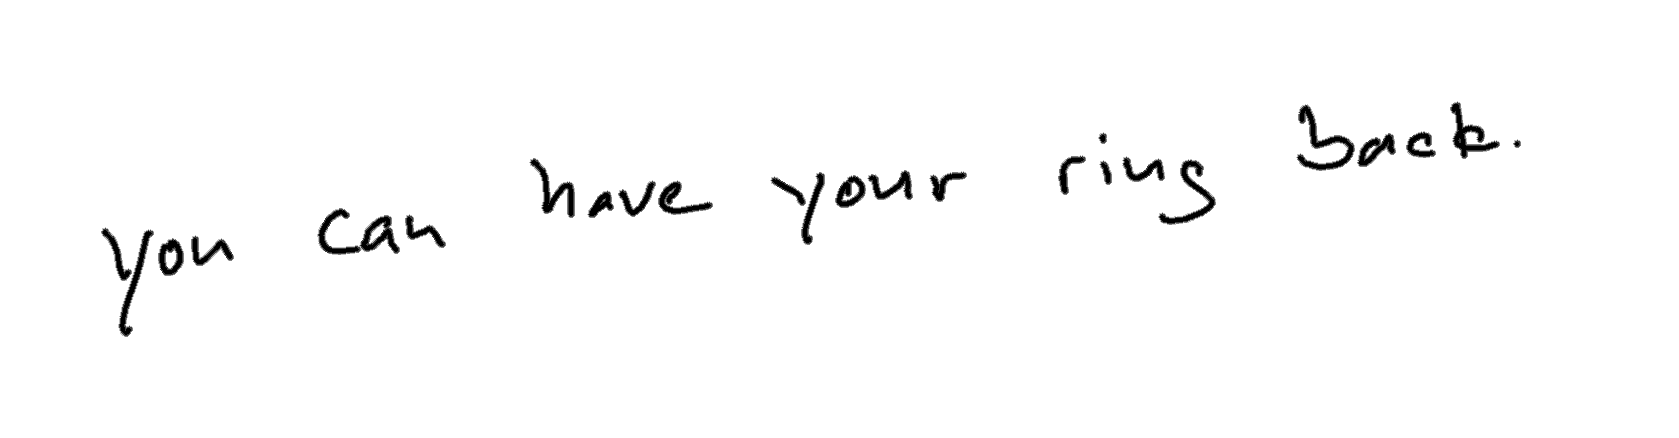 you can have your ring back.